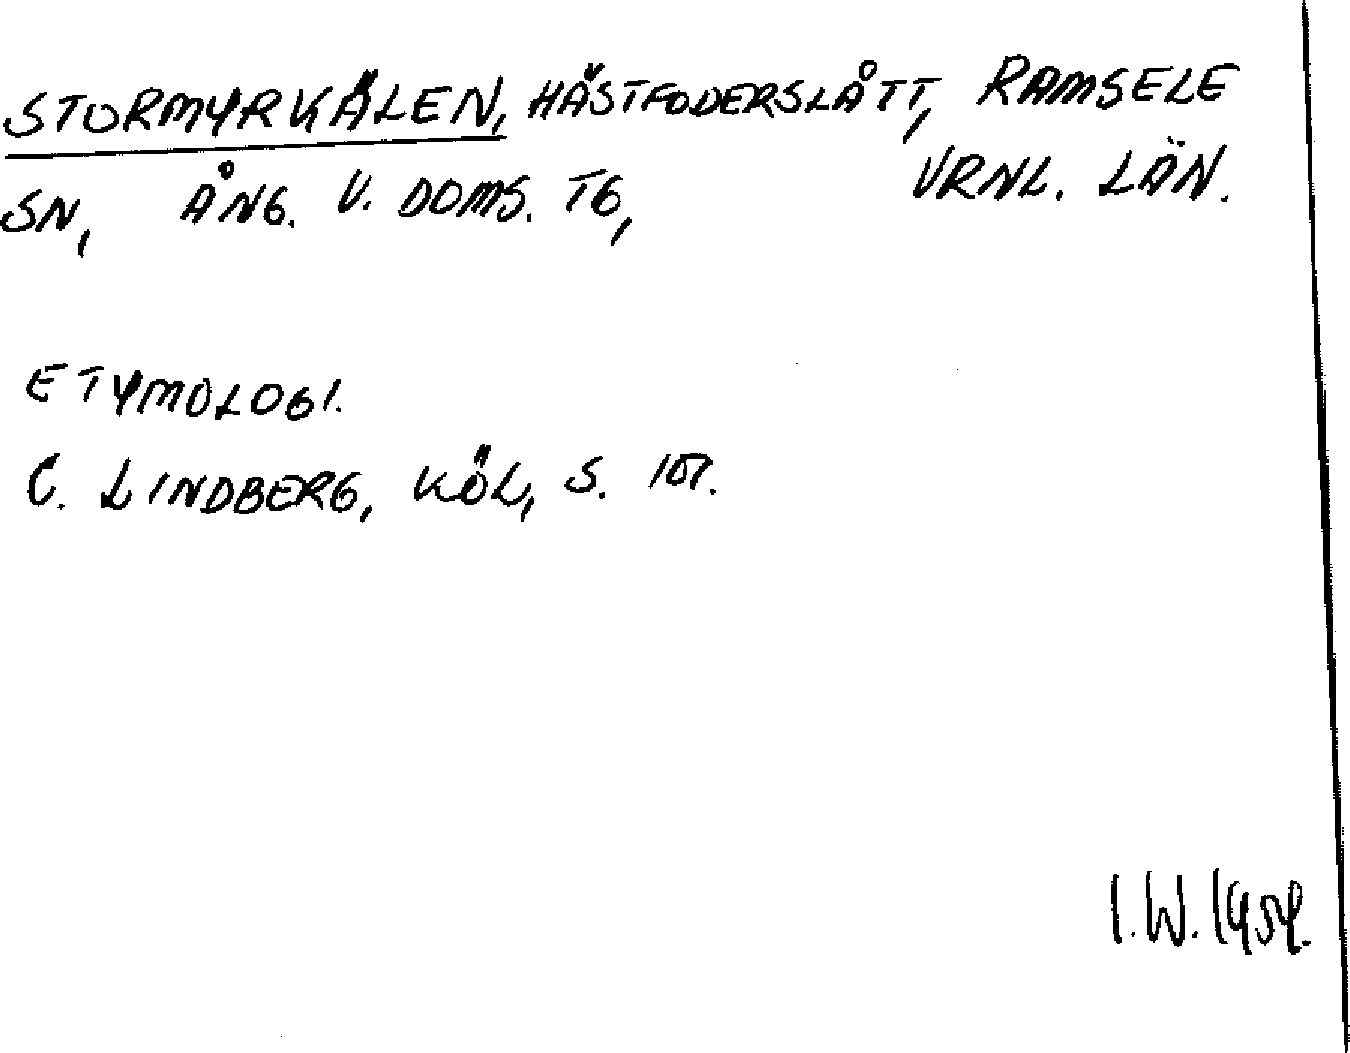 STORMYRKÄLEN, HÄSTFODERSLÅTT, RAMSELE
SN, ÅNG. V. DOMS. TG, VRNL. LÄN.
ETYMOLOGI.
C. LINDBERG, KÖL, S. 107.
I.W. 1959.